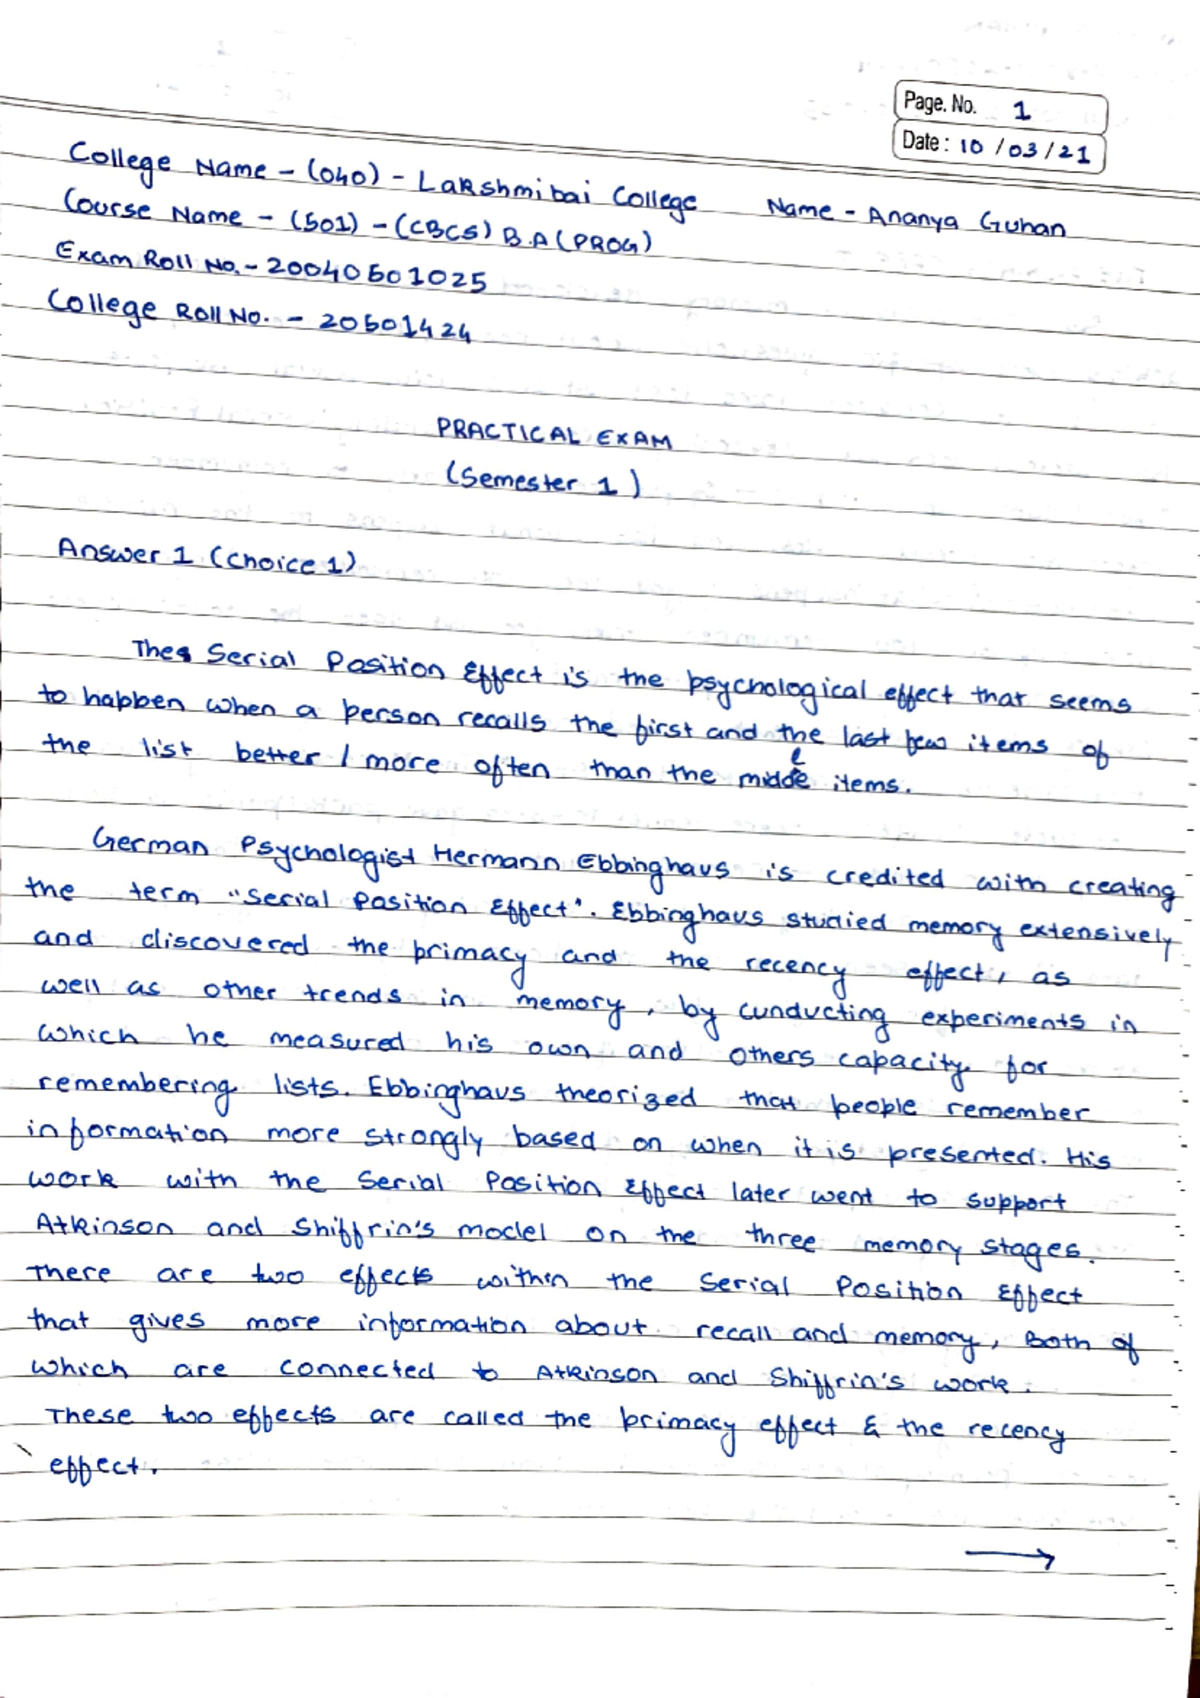 Page. No. 1
Date : 10 /03/21
College Name - (040) - Lakshmibai College Name - Ananya Guhan
Course Name - (501) - (CBCS) B.A (PROG)
Exam Roll No. - 20040501025
College Roll No. - 20501424
PRACTICAL EXAM
(Semester 1)
Answer 1 (Choice 1)
The Serial Position Effect is the psychological effect that seems
to happen when a person recalls the first and the last few items of
the list better / more often than the middle items.
German Psychologist Hermann Ebbinghaus is credited with creating
the term "Serial Position Effect". Ebbinghaus studied memory extensively
and discovered the primacy and the recency effect, as
well as other trends in memory, by cunducting experiments in
which he measured his own and others capacity for
remembering lists. Ebbinghaus theorized that people remember
information more strongly based on when it is presented. His
work with the Serial Position Effect later went to support
Atkinson and Shiffrin's model on the three memory stages.
There are two effects within the Serial Position Effect
that gives more information about recall and memory, Both of
which are connected to Atkinson and Shiffrin's work.
These two effects are called the primacy effect & the recency
effect.